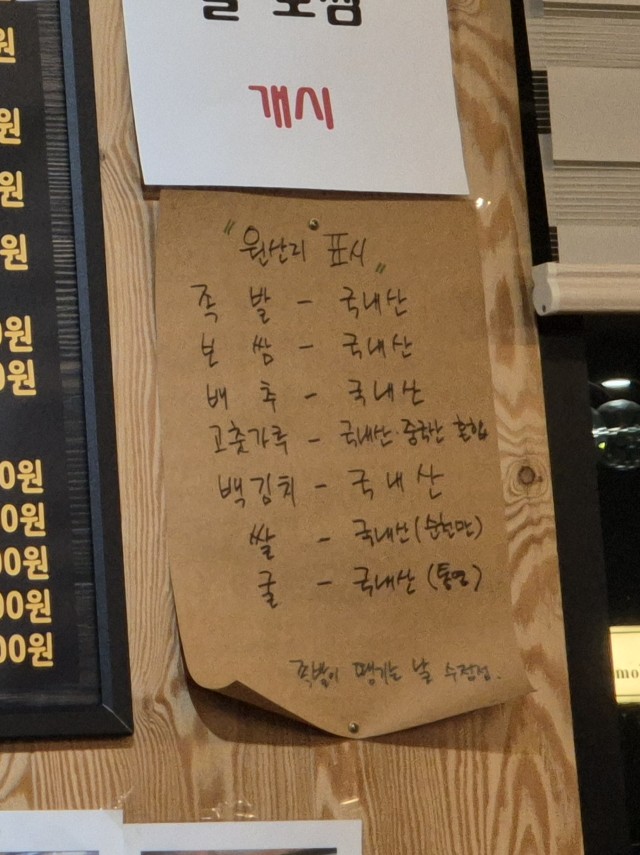 굴 보쌈
개시
" 원산지 표시 "
족 발 - 국내산
보 쌈 - 국내산
배 추 - 국내산
고춧가루 - 국내산·중국산 혼합
백김치 - 국내산
쌀 - 국내산 (순천만)
굴 - 국내산 (통영)
족발이 땡기는 날 수점점.
원
원
원
원
0원
0원
00원
00원
00원
00원
00원
mo